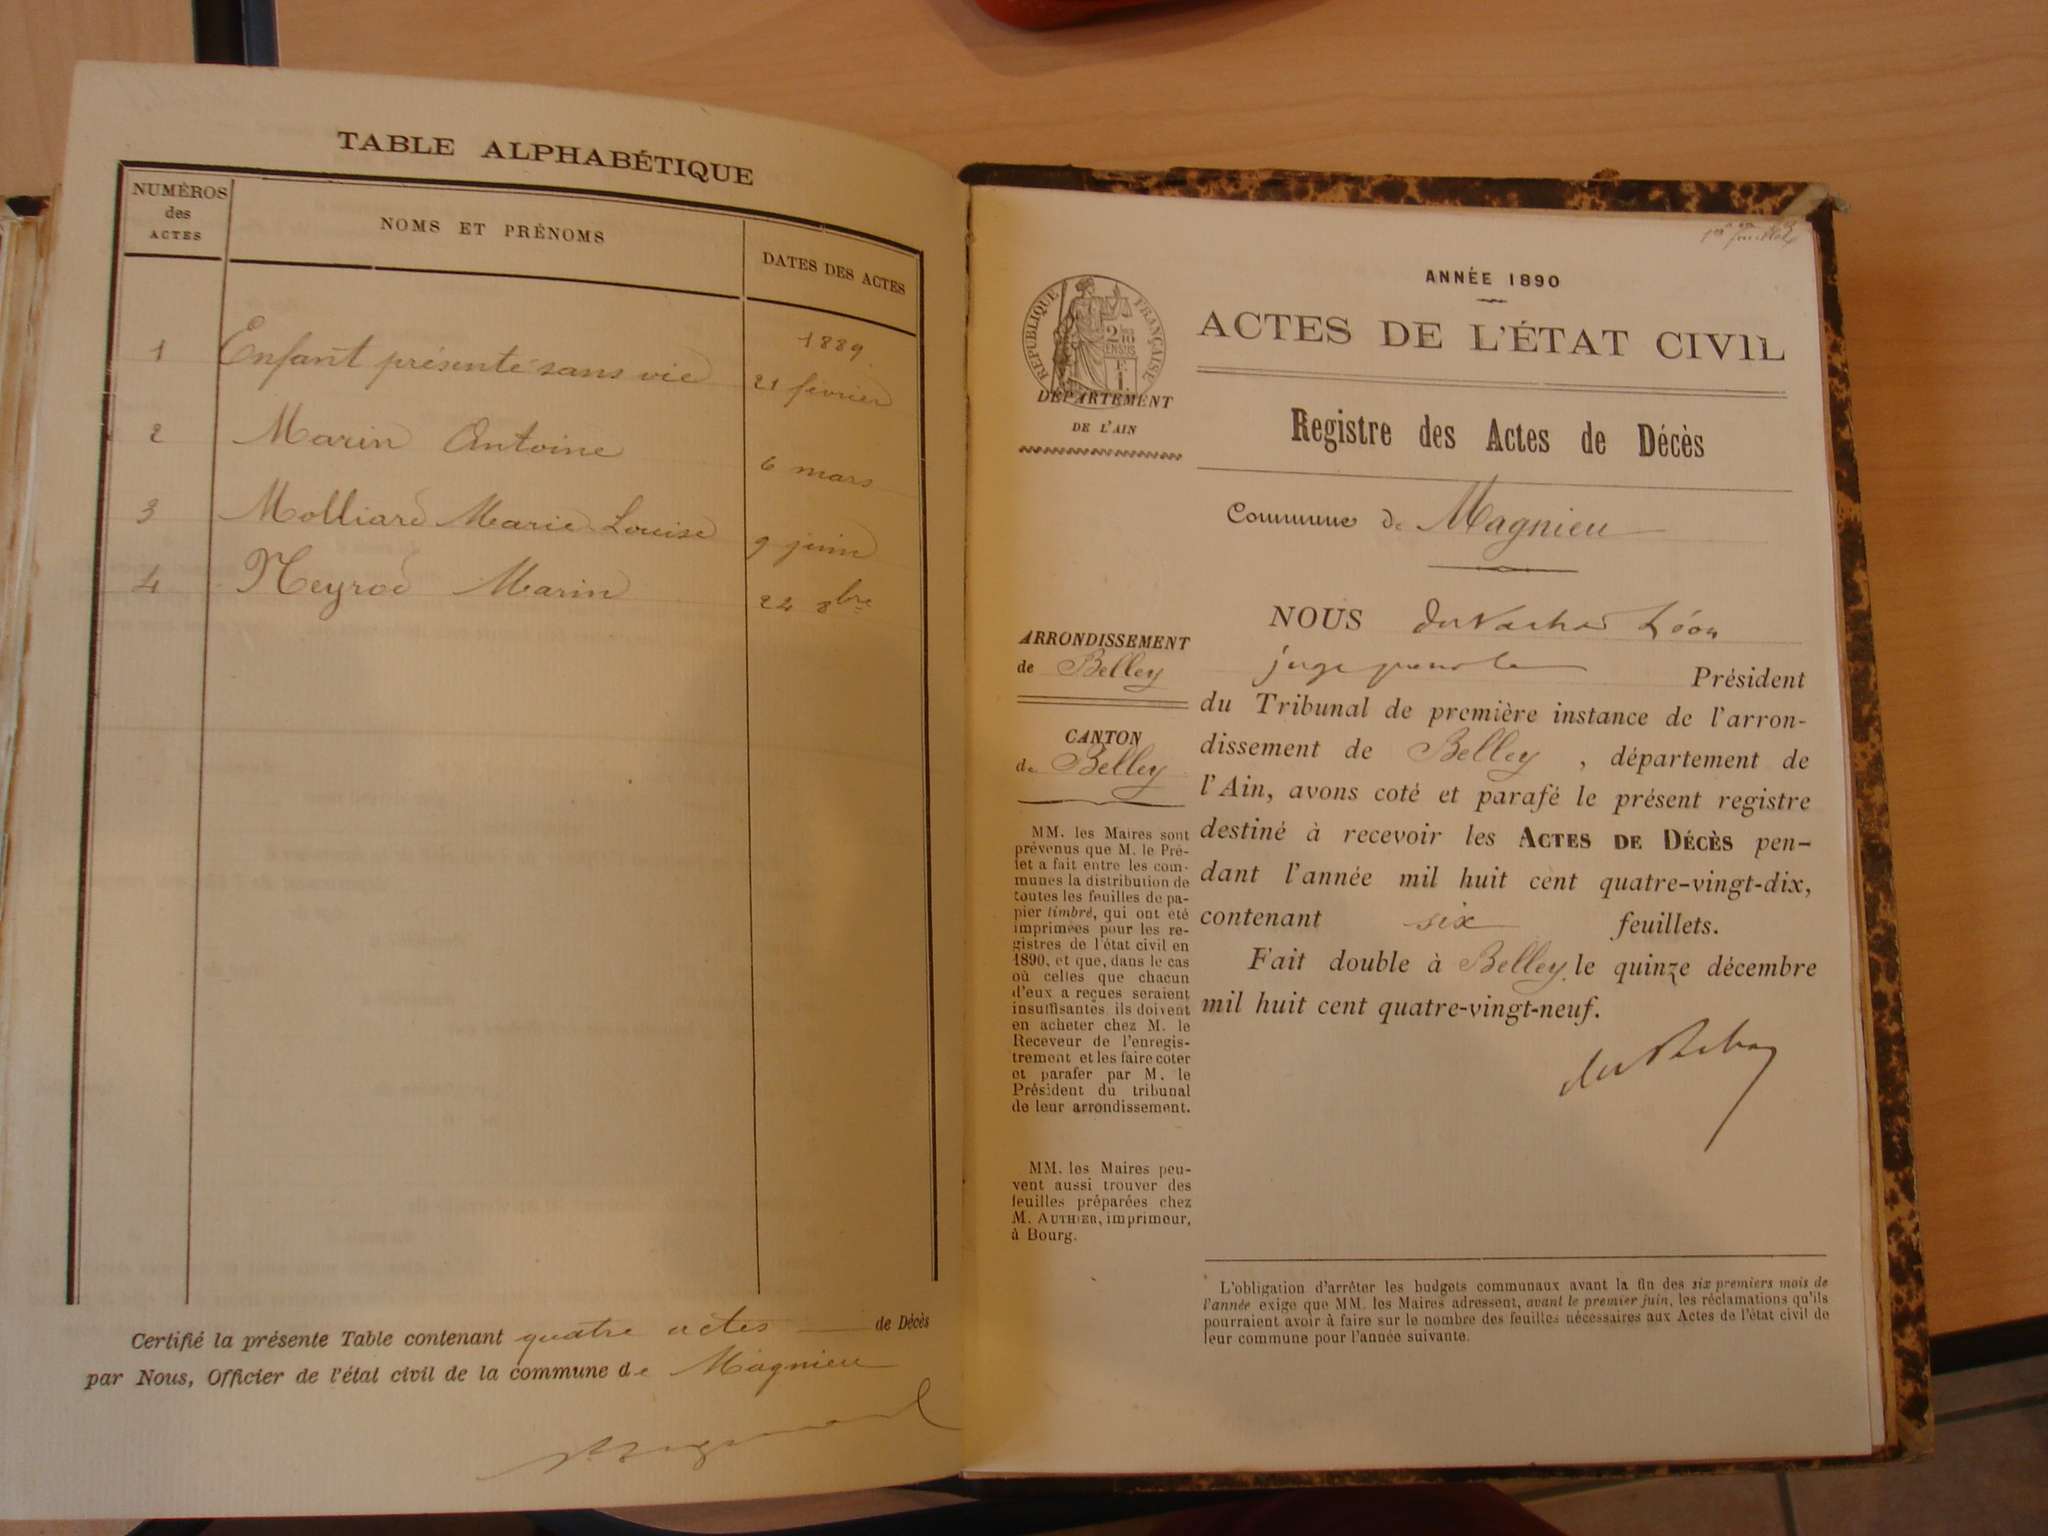 TABLE ALPHABÉTIQUE
NUMÉROS
des
ACTES
NOMS ET PRÉNOMS
DATES DES ACTES
1889
1 Enfant présenté sans vie 21 fevrier
2 Marin Antoine 6 mars
3 Molliard Marie Louise 9 juin
4 Neyrod Marin 24 8bre
Certifié la présente Table contenant quatre actes de Décès
par Nous, Officier de l'état civil de la commune de Magnieu
1er feuillet
ANNÉE 1890
ACTES DE L'ÉTAT CIVIL
Registre des Actes de Décès
Commune de Magnieu
RÉPUBLIQUE FRANÇAISE
2/10
EN SUS
F.
1.
DÉPARTEMENT
DE L'AIN
ARRONDISSEMENT
de Belley
CANTON
de Belley
MM. les Maires sont
prévenus que M. le Pré-
fet a fait entre les com-
munes la distribution de
toutes les feuilles de pa-
pier timbré, qui ont été
imprimées pour les re-
gistres de l'état civil en
1890, et que, dans le cas
où celles que chacun
d'eux a reçues seraient
insuffisantes, ils doivent
en acheter chez M. le
Receveur de l'enregis-
trement et les faire coter
et parafer par M. le
Président du tribunal
de leur arrondissement.
MM. les Maires peu-
vent aussi trouver des
feuilles préparées chez
M. AUTHIER, imprimeur,
à Bourg.
NOUS Léon
juge Président
du Tribunal de première instance de l'arron-
dissement de Belley, département de
l'Ain, avons coté et parafé le présent registre
destiné à recevoir les ACTES DE DÉCÈS pen-
dant l'année mil huit cent quatre-vingt-dix,
contenant six feuillets.
Fait double à Belley, le quinze décembre
mil huit cent quatre-vingt-neuf.
L'obligation d'arrêter les budgets communaux avant la fin des six premiers mois de
l'année exige que MM. les Maires adressent, avant le premier juin, les réclamations qu'ils
pourraient avoir à faire sur le nombre des feuilles nécessaires aux Actes de l'état civil de
leur commune pour l'année suivante.